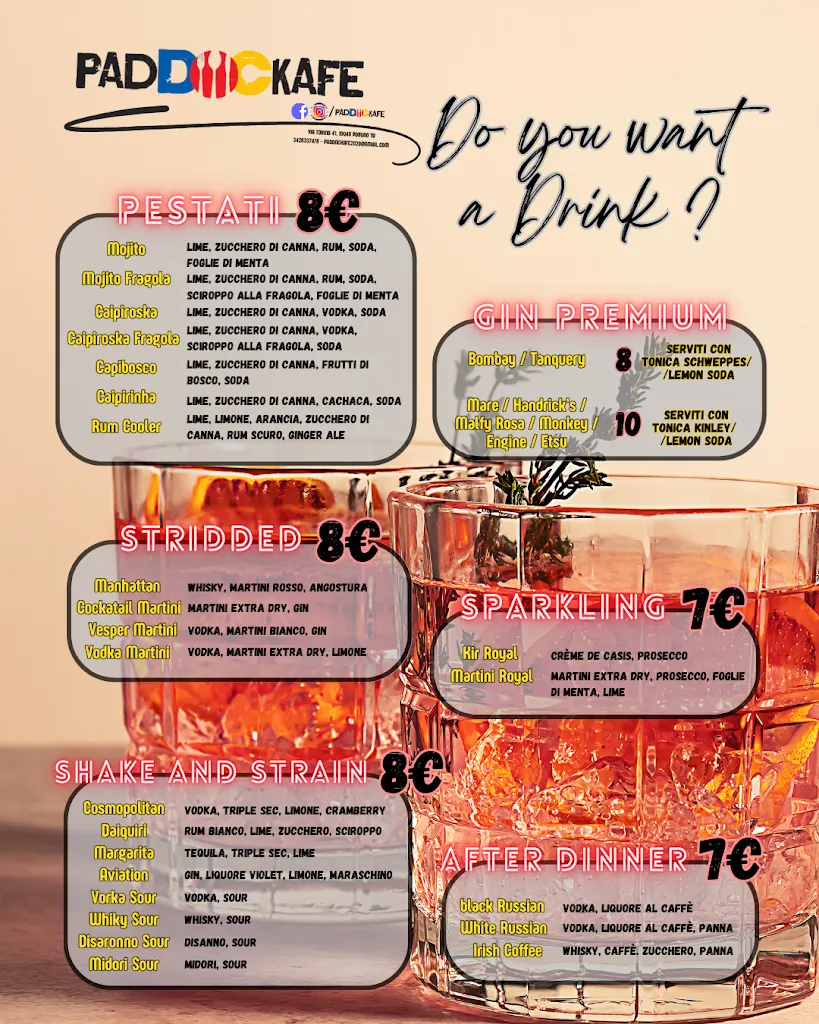 PADDOCKAFE
/ PADDOCKAFE
DO you want
a Drink ?
PESTATI 8€
Mojito LIME, ZUCCHERO DI CANNA, RUM, SODA,
FOGLIE DI MENTA
Mojito Fragola LIME, ZUCCHERO DI CANNA, RUM, SODA,
SCIROPPO ALLA FRAGOLA, FOGLIE DI MENTA
Caipiroska LIME, ZUCCHERO DI CANNA, VODKA, SODA
Caipiroska Fragola LIME, ZUCCHERO DI CANNA, VODKA,
SCIROPPO ALLA FRAGOLA, SODA
Capibosco LIME, ZUCCHERO DI CANNA, FRUTTI DI
BOSCO, SODA
Caipirinha LIME, ZUCCHERO DI CANNA, CACHACA, SODA
Rum Cooler LIME, LIMONE, ARANCIA, ZUCCHERO DI
CANNA, RUM SCURO, GINGER ALE
GIN PREMIUM
Bombay / Tanquery 8 SERVITI CON
TONICA SCHWEPPES/
/LEMON SODA
Mare / Handrick's /
Malfy Rosa / Monkey /
Engine / Etsu
10 SERVITI CON
TONICA KINLEY/
/LEMON SODA
STRIDDED 8€
Manhattan WHISKY, MARTINI ROSSO, ANGOSTURA
Cockatail Martini MARTINI EXTRA DRY, GIN
Vesper Martini VODKA, MARTINI BIANCO, GIN
Vodka Martini VODKA, MARTINI EXTRA DRY, LIMONE
SPARKLING 7€
Kir Royal CRÈME DE CASIS, PROSECCO
Martini Royal MARTINI EXTRA DRY, PROSECCO, FOGLIE
DI MENTA, LIME
SHAKE AND STRAIN 8€
Cosmopolitan VODKA, TRIPLE SEC, LIMONE, CRAMBERRY
Daiquiri RUM BIANCO, LIME, ZUCCHERO, SCIROPPO
Margarita TEQUILA, TRIPLE SEC, LIME
Aviation GIN, LIQUORE VIOLET, LIMONE, MARASCHINO
Vorka Sour VODKA, SOUR
Whiky Sour WHISKY, SOUR
Disaronno Sour DISANNO, SOUR
Midori Sour MIDORI, SOUR
AFTER DINNER 7€
black Russian VODKA, LIQUORE AL CAFFÈ
White Russian VODKA, LIQUORE AL CAFFÈ, PANNA
Irish Coffee WHISKY, CAFFÈ. ZUCCHERO, PANNA